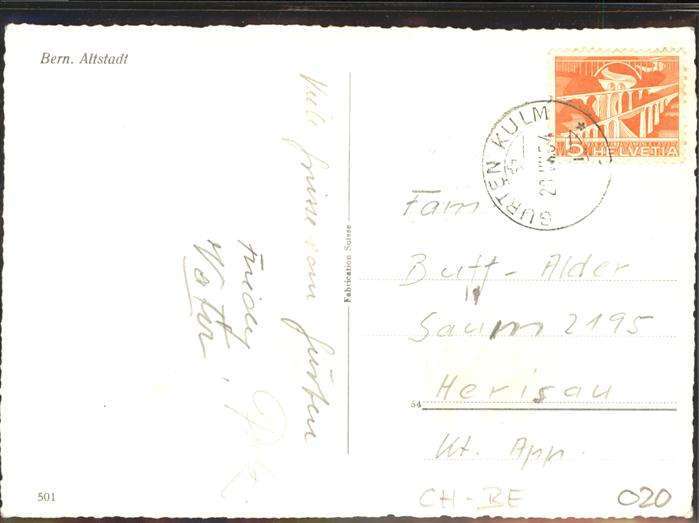 Bern. Altstadt
5 HELVETIA
GURTEN KULM
Viele Grüsse vom Gurten
Vater
Fabrication Suisse
Fam
Buff - Alder
Saum 2195
Herisau
54
Kt. App.
501
CH-BE
020